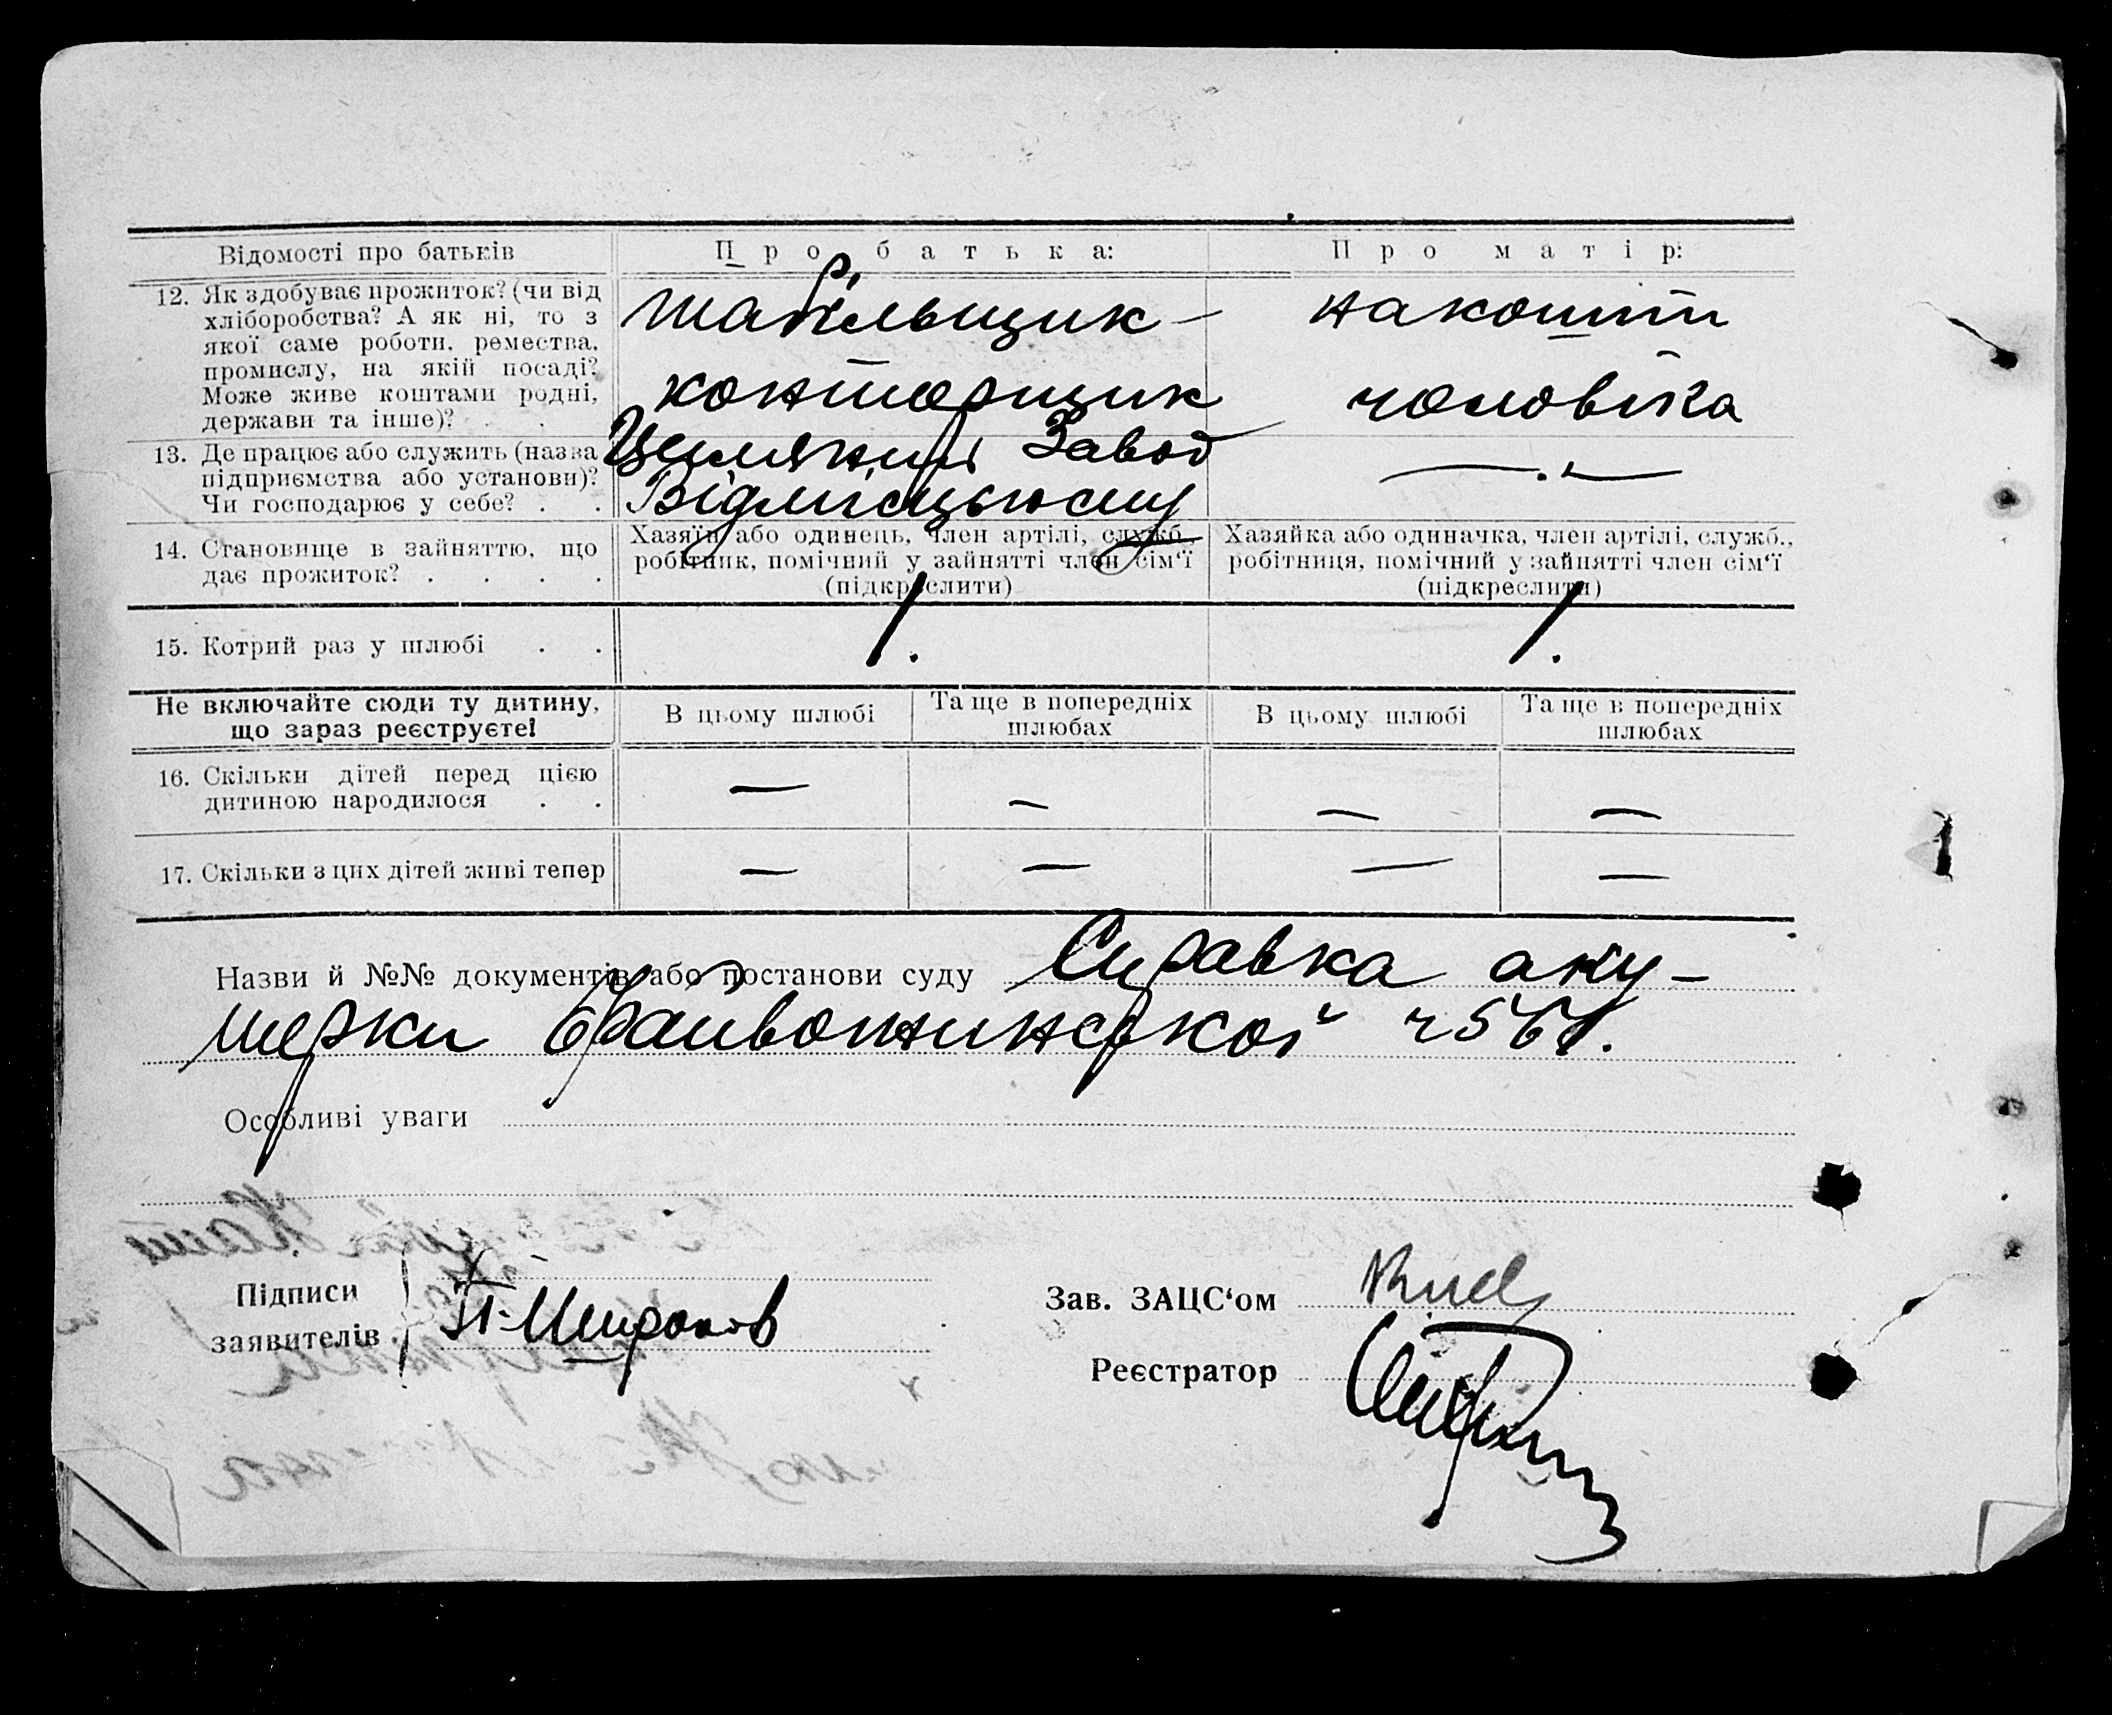 Відомості про батьків
Про батька:
Про матір:
12. Як здобуває прожиток? (чи від
хліборобства? А як ні, то з
якої саме роботи, ремества,
промислу, на якій посаді?
Може живе коштами родні,
держави та інше)? . .
конторщик
на кошти
чоловіка
13. Де працює або служить (назва
підприємства або установи)?
Чи господарює у себе? . .
Завод
14. Становище в зайняттю, що
дає прожиток? . . . .
Хазяїн або одинець, член артілі, служб.,
робітник, помічний у зайнятті член сім‘ї
(підкреслити)
Хазяйка або одиначка, член артілі, служб.,
робітниця, помічний у зайнятті член сім‘ї
(підкреслити)
15. Котрий раз у шлюбі . .
1.
1.
Не включайте сюди ту дитину,
що зараз реєструєте!
В цьому шлюбі
Та ще в попередніх
шлюбах
В цьому шлюбі
Та ще в попередніх
шлюбах
16. Скільки дітей перед цією
дитиною народилося . .
— — — —
17. Скільки з цих дітей живі тепер
— — — —
Назви й №№ документів або постанови суду Справка аку-
шерки
Особливі уваги
Підписи
заявителів
Зав. ЗАЦС‘ом
Реєстратор